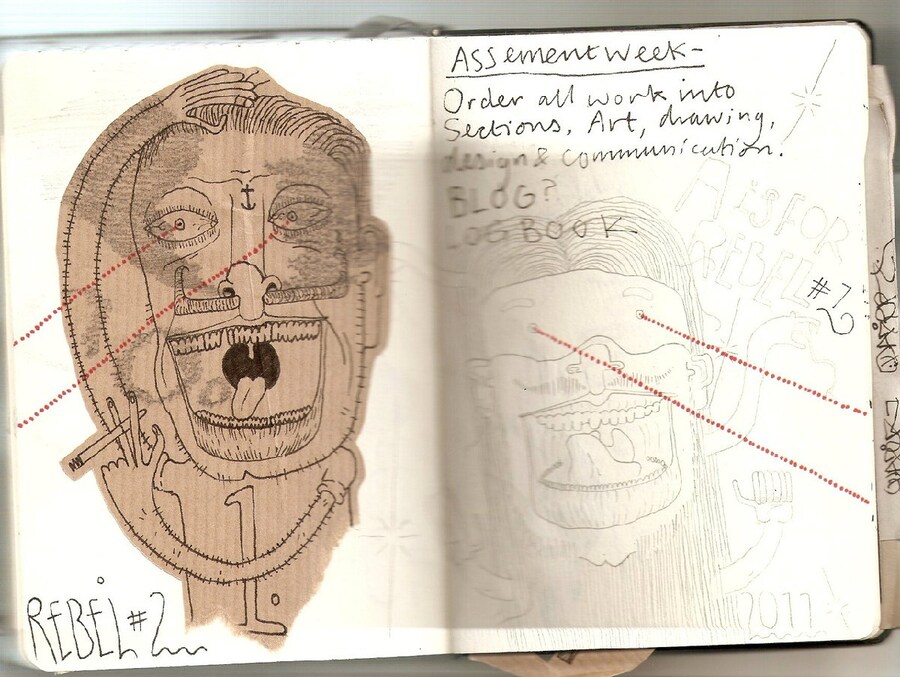 REBEL #2
ASSementWeek-
Order all work into
Sections, Art, drawing,
design & communication.
BLOG?
LOGBOOK-
A is FOR
REBEL
#2
2011